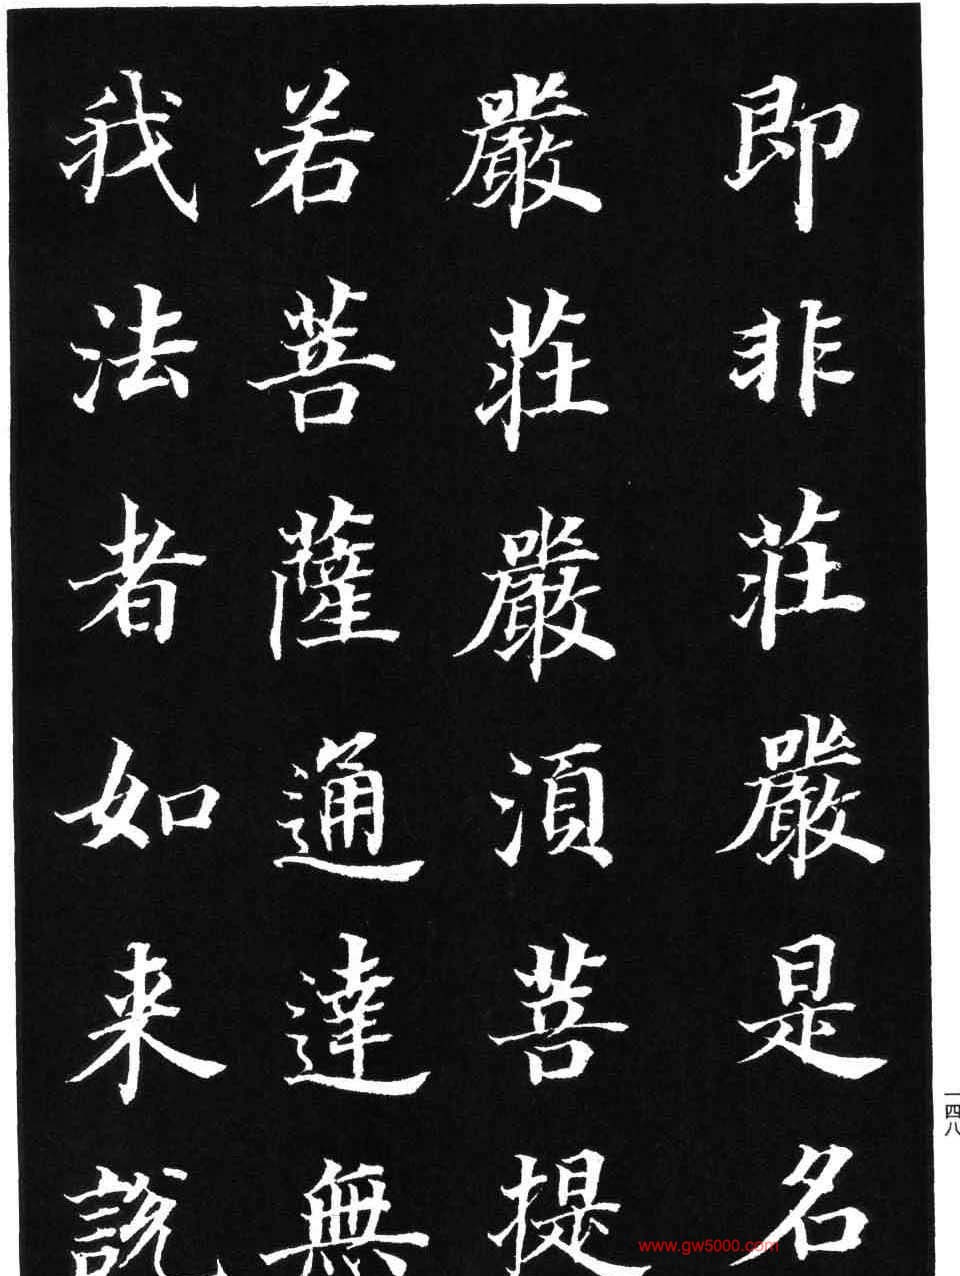 即非莊嚴是名
嚴莊嚴湏菩提
若菩薩通達無
我法者如来說
一四八
www.gw5000.com